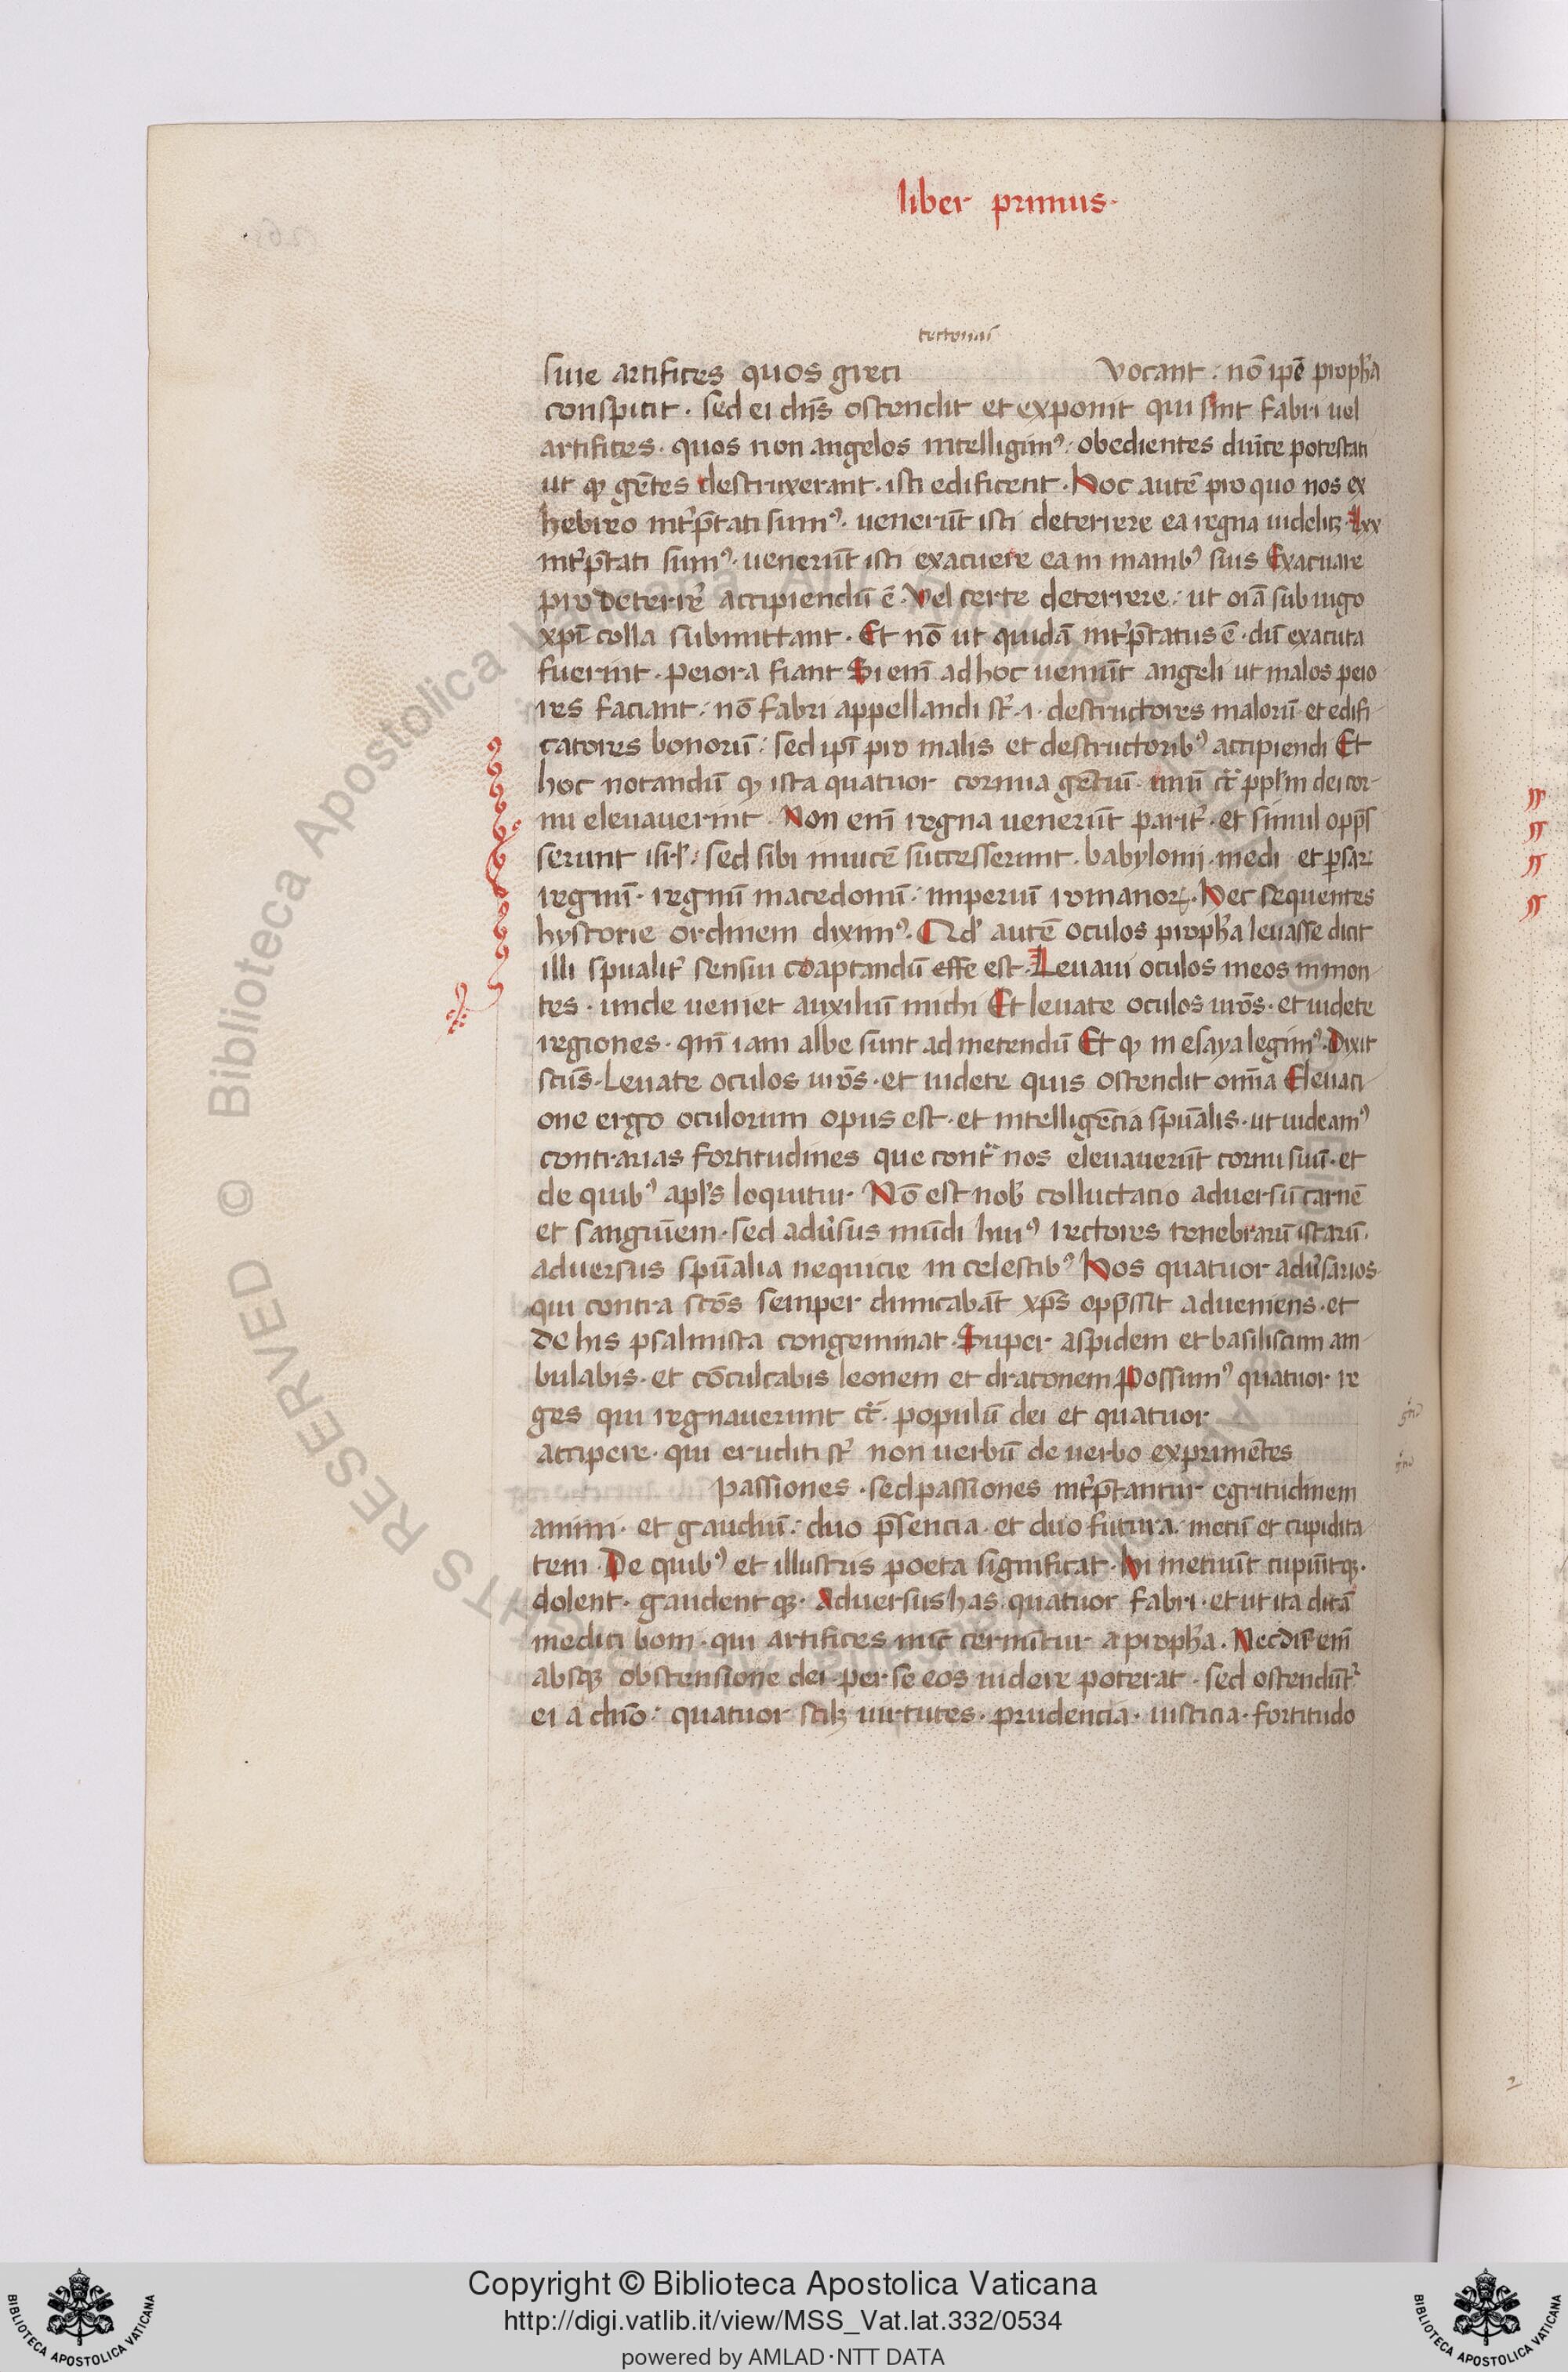 liber primus.
tectonas
siue artifices quos greci vocant. nō ip̄e proph̄a
conspicit. sed ei dn̄s ostendit et exponit qui sint fabri uel
artifices. quos non angelos intelligimꝰ. obedientes diuīe potestati
ut qͥ gētes destruxerant. isti edificent. Hoc autē pro quo nos ex
hebreo int̓p̄tati sumꝰ. uenerūt isti deterrere ea regna uidelicꝫ. Lxx
int̓p̄tati sumꝰ. uenerūt isti exacuere ea in manibꝰ suis Exacuare
pro deterre̓ accipiendū ē. Vel certe deterrere. ut oīa sub iugo
xp̄i colla submittant. Et nō ut quidā int̓p̄tatus ē. dū exacuta
fuerint. peiora fiant Si em̄ ad hoc ueniūt angeli ut malos peio
res faciant. nō fabri appellandi st̄. i. destructores maloru᷑. et edifi
catores bonorū. sed ip̄i pro malis et destructoribꝰ accipiendi Et
hoc notandū qͥ ista quatuor cornua gētiū. unū ct̄ ppl̄m dei cor
nu eleuauerint. Non em̄ regna uenerūt parit̓. et simul opp̄s
serunt isrl̄. sed sibi inuicē successerunt. babylonij. medi et ꝑsar
regnū. regnū macedonū. imperiū romanoꝝ. Hec sequentes
hystorie ordinem diximꝰ. Qd̓ autē oculos proph̄a leuasse dicit
illi spualit̓ sensui coaptandū esse est. Leuaui oculos meos in mon
tes. unde ueniet auxiliū michi Et leuate oculos ur̄os. et uidete
regiones. qm̄ iam albe sunt ad metendū Et qͥ in esaya legimꝰ. Dixit
scūs. Leuate oculos ur̄os. et uidete quis ostendit om̄ia Eleuati
one ergo oculorum opus est. et intelligēcia spūalis. ut uideamꝰ
contrarias fortitudines que cont̓ nos eleuauerūt cornu suū. et
de quibꝰ apl̄s loquitur. Nō est nob̓ colluctacio aduersū carnē
et sanguīem. sed adu̓sus mūdi huiꝰ rectores tenebrarū istarū.
aduersus spūalia nequicie in celestibꝰ Hos quatuor adu̓sarios
qui contra scōs semper dimicabāt xp̄s opp̄ssit adueniens. et
de his psalmista congeminat. Super aspidem et basiliscum am
bulabis. et cōculcabis leonem et draconem Possumꝰ quatuor re
ges qui regnauerunt ct̄. populū dei et quatuor
accipere. qui eruditi st̄ non uerbū de uerbo exprimētes
passiones. sed passiones int̓p̄tantur egritudinem
animi. et gaudiū. duo p̄sencia. et duo futura. metū et cupidita
tem. De quibꝰ et illustris poeta significat. Hi metuūt cupiūtqꝫ.
dolent. gaudentqꝫ. Aduersus has quatuor fabri. et ut ita dicā
medici boni. qui artifices nūc cernūtur a proph̄a. Nec dū em̄
absqꝫ obstensione dei per se eos uidere poterat. sed ostendūt̓
ei a dn̄o. quatuor scilꝫ uirtutes. prudencia. iusticia. fortitudo
Copyright © Biblioteca Apostolica Vaticana
http://digi.vatlib.it/view/MSS_Vat.lat.332/0534
powered by AMLAD·NTT DATA